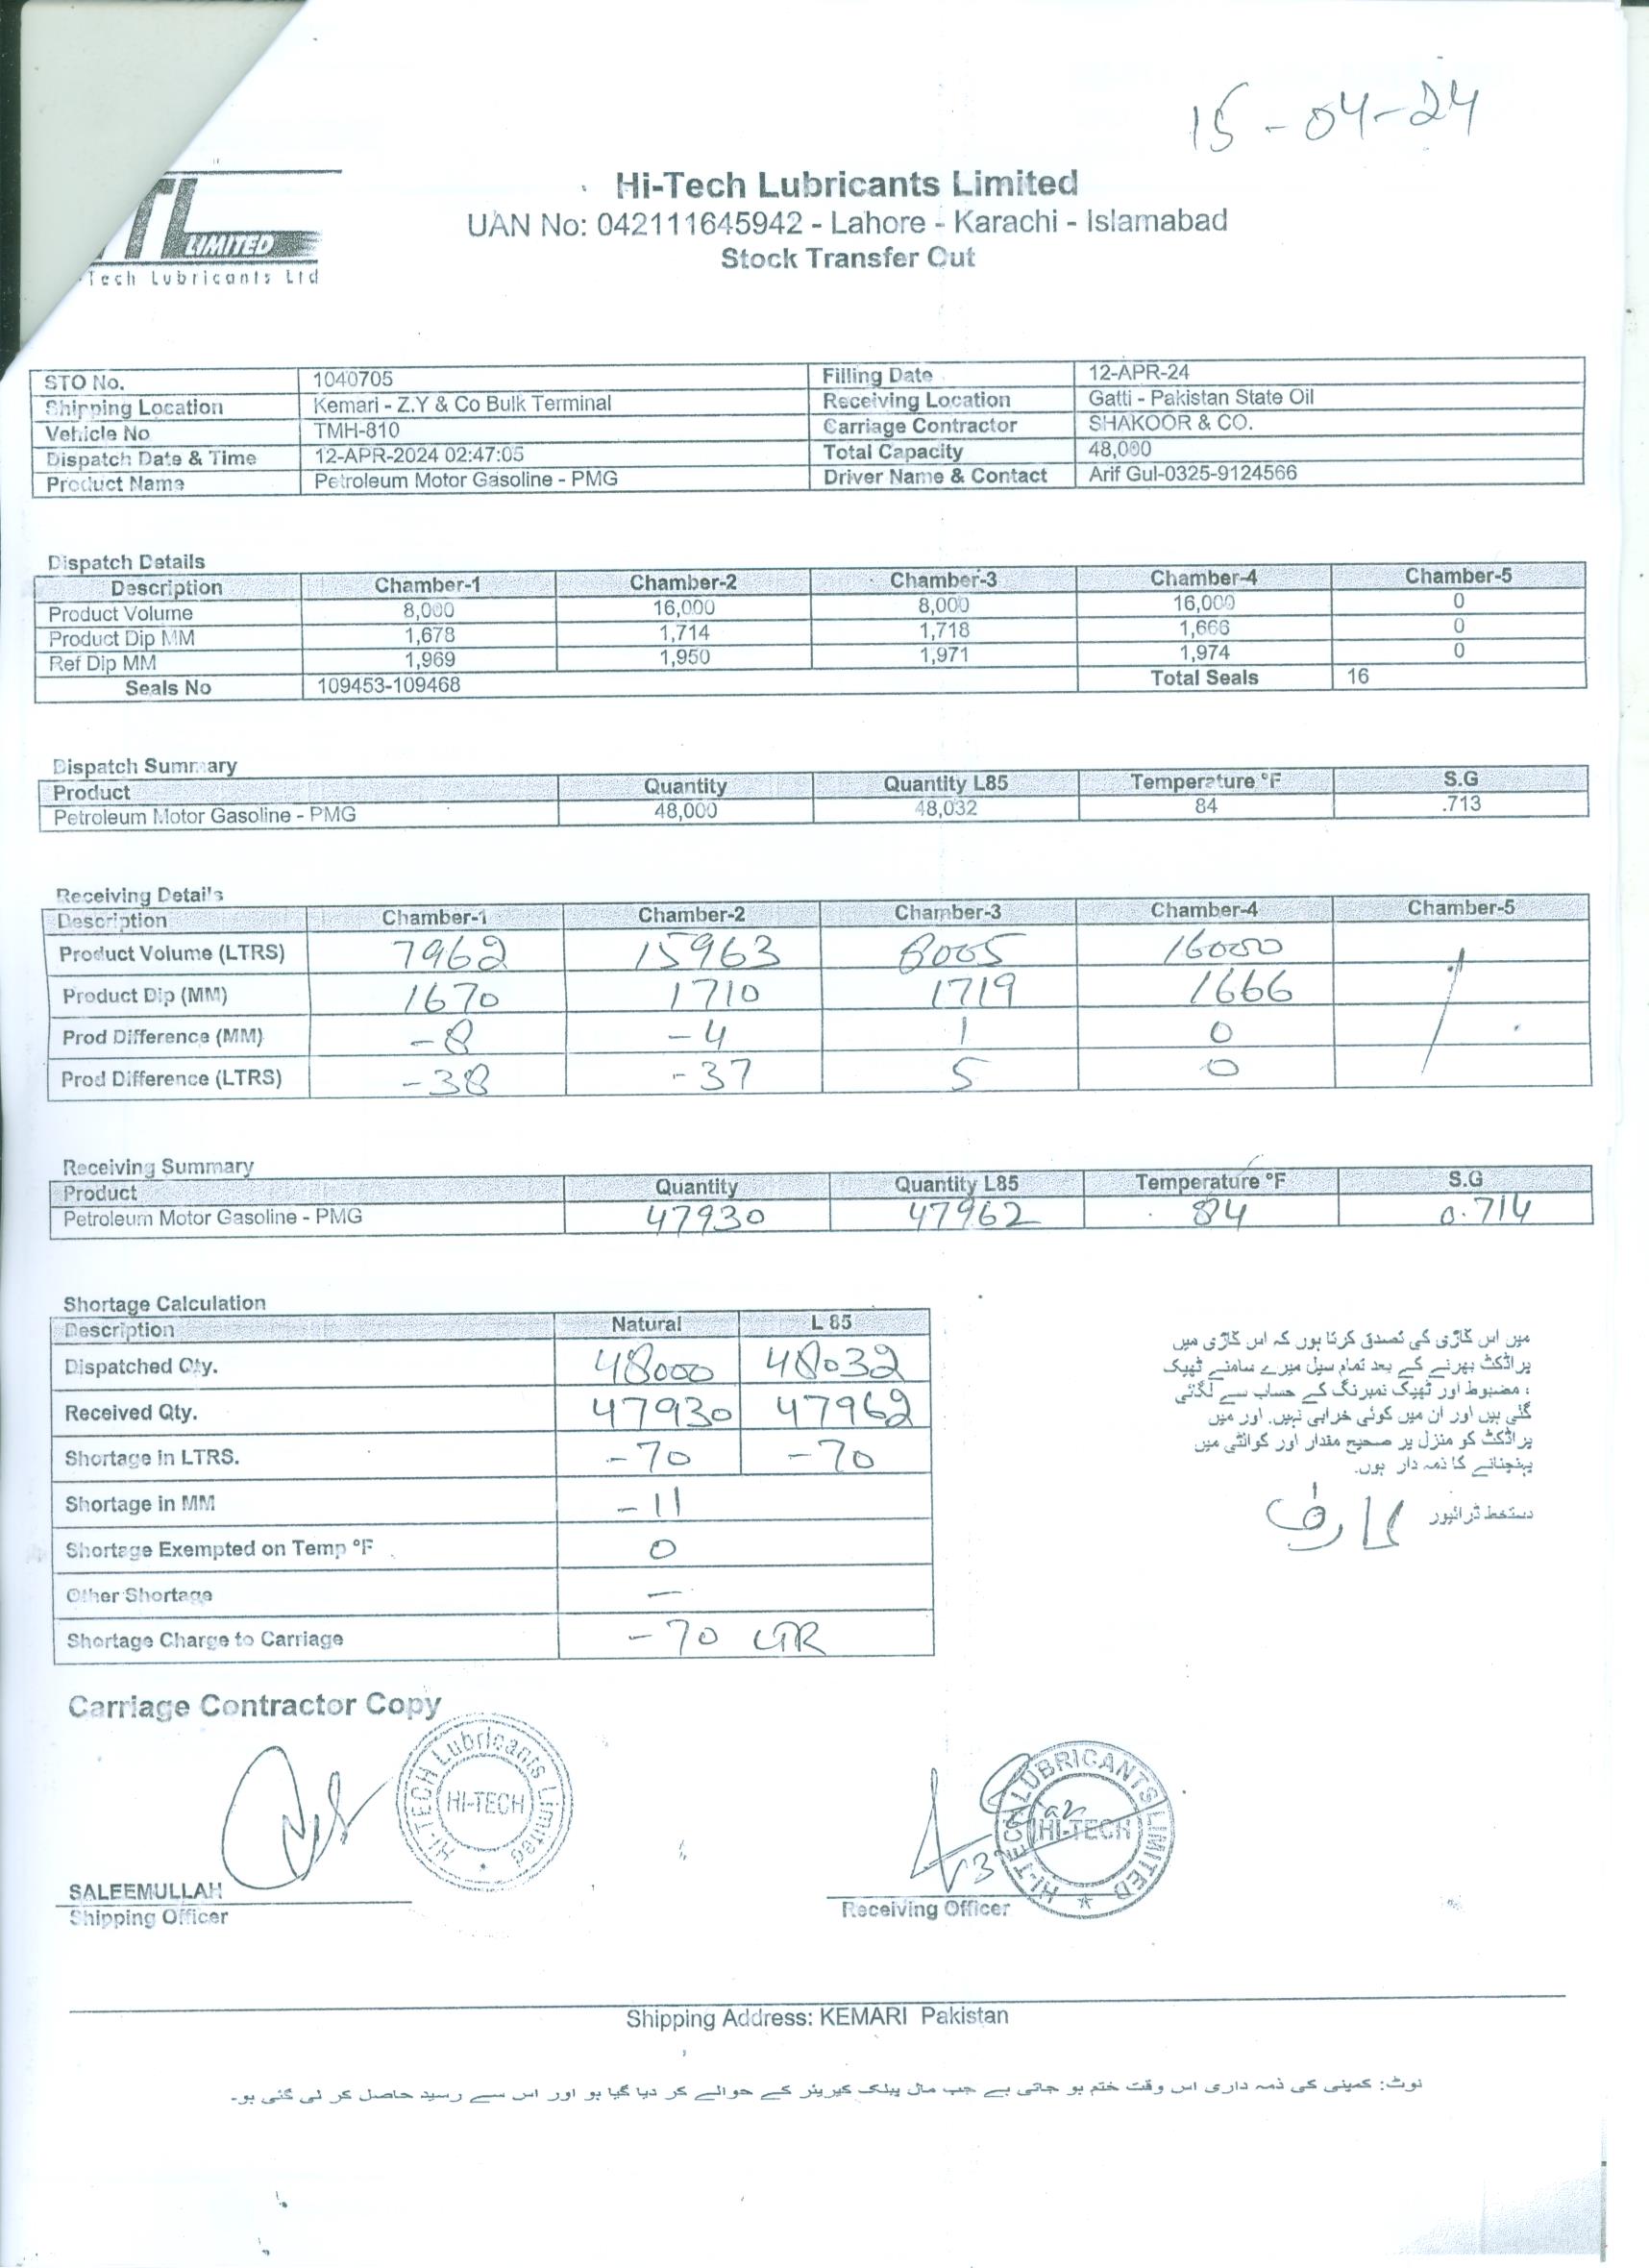 15-04-24
TL
LIMITED
Tech Lubricants Ltd
Hi-Tech Lubricants Limited
UAN No: 042111645942 - Lahore - Karachi - Islamabad
Stock Transfer Out
STO No. 1040705 Filling Date 12-APR-24
Shipping Location Kemari - Z.Y & Co Bulk Terminal Receiving Location Gatti - Pakistan State Oil
Vehicle No TMH-810 Carriage Contractor SHAKOOR & CO.
Dispatch Date & Time 12-APR-2024 02:47:05 Total Capacity 48,000
Product Name Petroleum Motor Gasoline - PMG Driver Name & Contact Arif Gul-0325-9124566
Dispatch Details
Description Chamber-1 Chamber-2 Chamber-3 Chamber-4 Chamber-5
Product Volume 8,000 16,000 8,000 16,000 0
Product Dip MM 1,678 1,714 1,718 1,666 0
Ref Dip MM 1,969 1,950 1,971 1,974 0
Seals No 109453-109468 Total Seals 16
Dispatch Summary
Product Quantity Quantity L85 Temperature °F S.G
Petroleum Motor Gasoline - PMG 48,000 48,032 84 .713
Receiving Details
Description Chamber-1 Chamber-2 Chamber-3 Chamber-4 Chamber-5
Product Volume (LTRS) 7962 15963 8005 16000
Product Dip (MM) 1670 1710 1719 1666
Prod Difference (MM) -8 -4 1 0
Prod Difference (LTRS) -38 -37 5 0
Receiving Summary
Product Quantity Quantity L85 Temperature °F S.G
Petroleum Motor Gasoline - PMG 47930 47962 84 0.714
Shortage Calculation
Description Natural L 85
Dispatched Qty. 48000 48032
Received Qty. 47930 47962
Shortage in LTRS. -70 -70
Shortage in MM -11
Shortage Exempted on Temp °F 0
Other Shortage —
Shortage Charge to Carriage -70 LTR
میں اس گاڑی کی تصدق کرتا ہوں کہ اس گاڑی میں
پراڈکٹ بھرنے کے بعد تمام سیل میرے سامنے ٹھیک
، مضبوط اور ٹھیک نمبرنگ کے حساب سے لگائی
گئی ہیں اور ان میں کوئی خرابی نہیں. اور میں
پراڈکٹ کو منزل پر صحیح مقدار اور کوالٹی میں
پہنچنانے کا ذمہ دار ہوں.
دستخط ڈرائیور عارف
Carriage Contractor Copy
HI-TECH Lubricants Limited
HI-TECH
HI-TECH LUBRICANTS LIMITED
HI-TECH
SALEEMULLAH
Shipping Officer
Receiving Officer
Shipping Address: KEMARI Pakistan
نوٹ: کمپنی کی ذمہ داری اس وقت ختم ہو جاتی ہے جب مال پبلک کیریئر کے حوالے کر دیا گیا ہو اور اس سے رسید حاصل کر لی گئی ہو۔